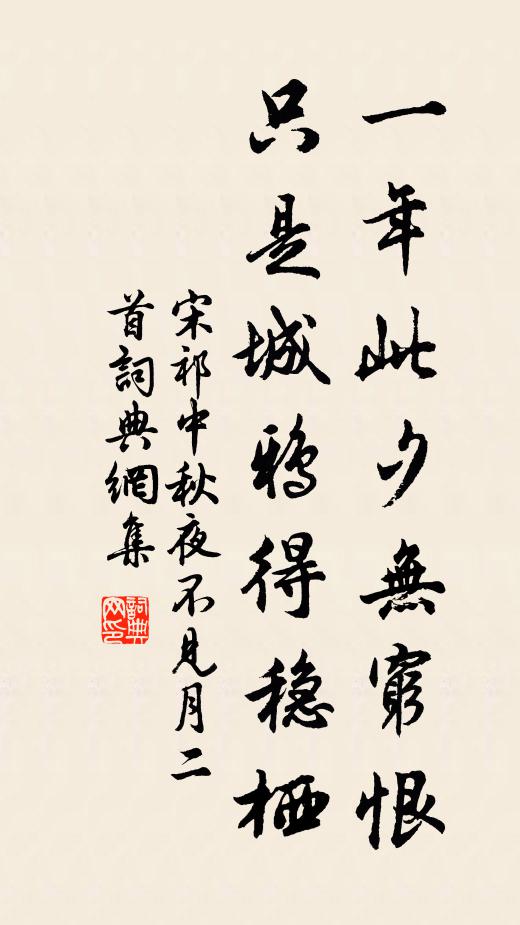 一年此夕無窮恨
只是城鴉得穩栖
宋祁中秋夜不見月二
首詞典網集
詞典网印